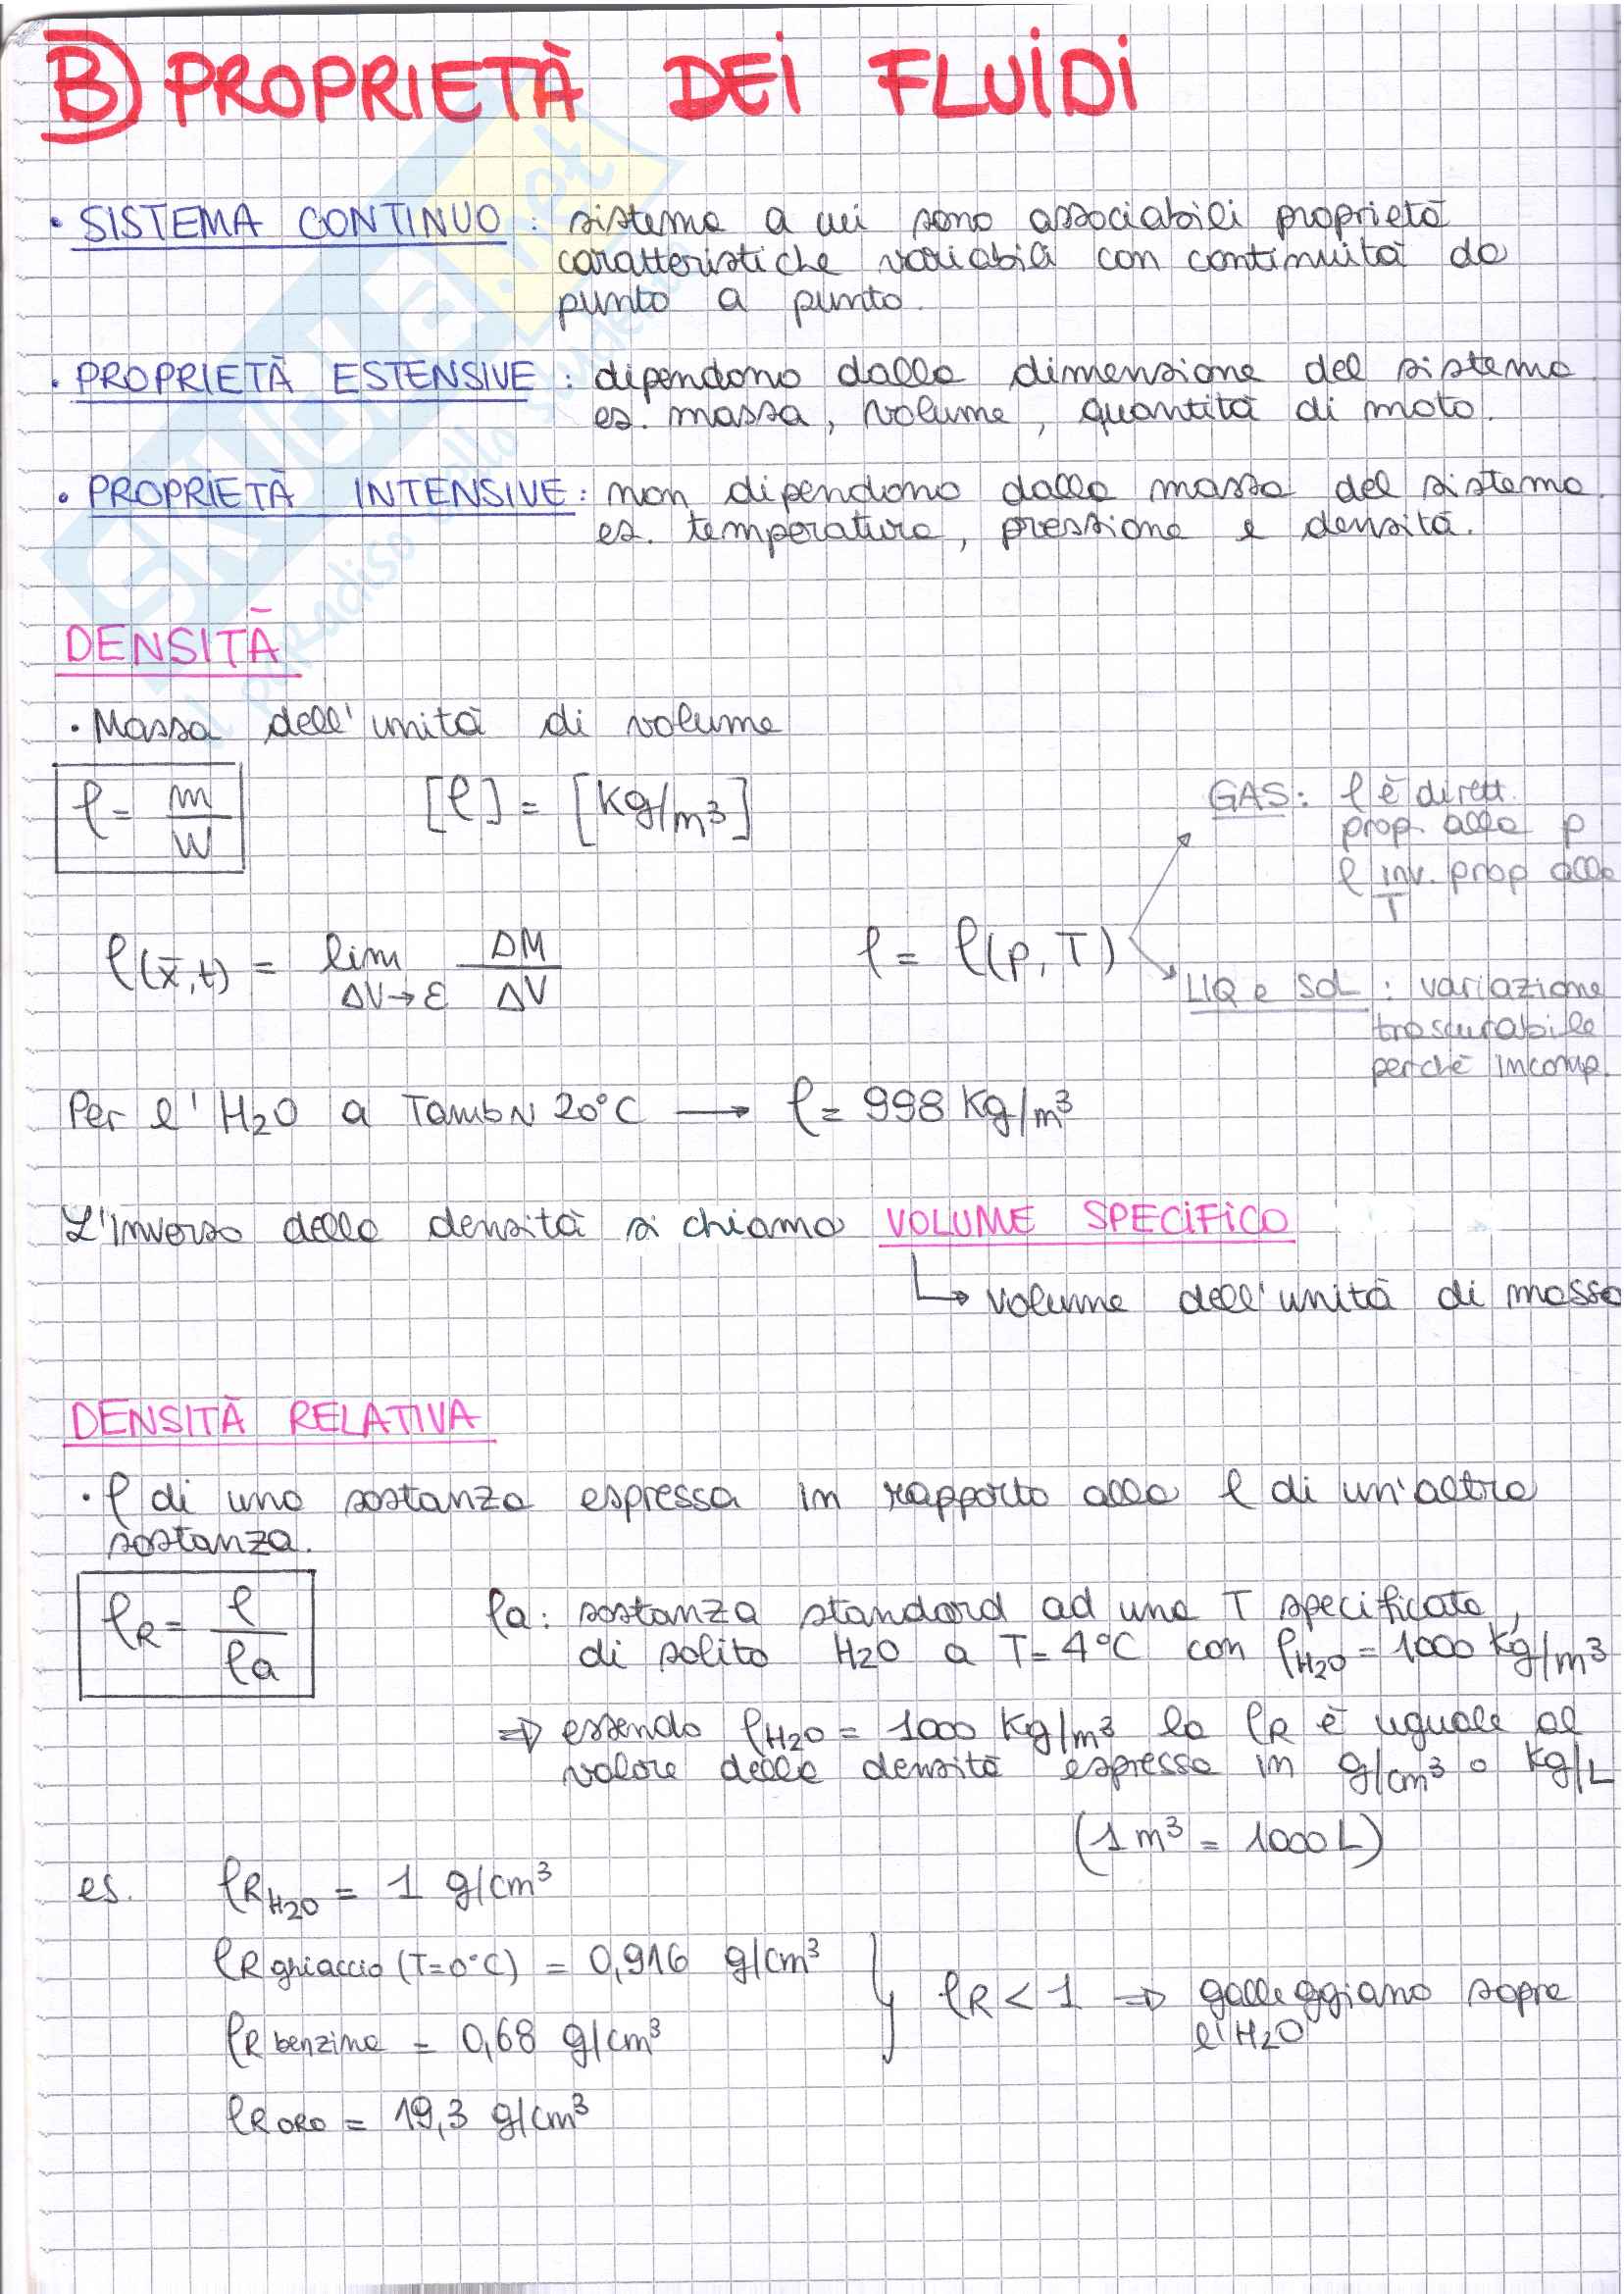 B) PROPRIETÀ DEI FLUIDI
• SISTEMA CONTINUO : sistema a cui sono associabili proprietà
caratteristiche variabili con continuità da
punto a punto.
• PROPRIETÀ ESTENSIVE : dipendono dalla dimensione del sistema
es. massa, volume, quantità di moto.
• PROPRIETÀ INTENSIVE : non dipendono dalla massa del sistema.
es. temperatura, pressione e densità.
DENSITÀ
• Massa dell'unità di volume
ρ = m/W [ρ] = [kg/m³]
GAS: ρ è dirett.
prop. alla p
ρ inv. prop alla
T
ρ(x̄,t) = lim ΔV→ε ΔM/ΔV ρ = ρ(p, T)
LIQ e SOL : variazione
trascurabile
perchè incomp.
Per l'H2O a TambN 20°C → ρ = 998 Kg/m³
L'inverso della densità si chiama VOLUME SPECIFICO
↳ volume dell'unità di massa
DENSITÀ RELATIVA
• ρ di una sostanza espressa in rapporto alla ρ di un'altra
sostanza.
ρR = ρ/ρa ρa : sostanza standard ad una T specificata,
di solito H2O a T= 4°C con ρH2O = 1000 Kg/m³
⇒ essendo ρH2O = 1000 Kg/m³ la ρR è uguale al
valore della densità espressa in g/cm³ o Kg/L
(1 m³ = 1000 L)
es. ρR H2O = 1 g/cm³
ρR ghiaccio (T=0°C) = 0,916 g/cm³
ρR < 1 ⇒ galleggiano sopra
l'H2O
ρR benzina = 0,68 g/cm³
ρR ORO = 19,3 g/cm³
SKUOLA.net
il paradiso dello studente